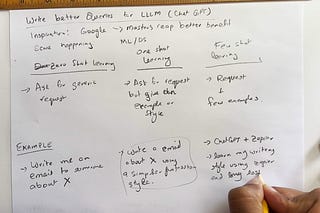 Write better Queries for LLLM (Chat GPT)
Inspiration: Google → Masters reap better benefit
Scene happening ML/DS
Zero Shot learning
→ Ask for generic
request
one shot
learning
→ Ask for request
but give
example or
style
Few shot
learning
→ Request
+
few examples
EXAMPLE
→ Write me an
email to someone
about X
→ Write a email
about X using
a simple
style.
→ ChatGPT + Zapier
→ learn my writing
style using zapier
and